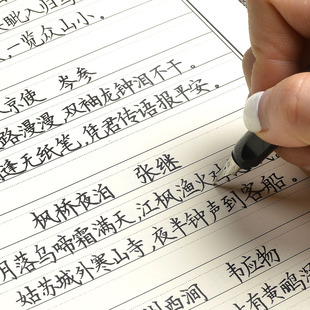 眦入归鸟
，一览众山小。
京使 岑参
路漫漫，双袖龙钟泪不干。
逢无纸笔，凭君传语报平安。
枫桥夜泊 张继
月落乌啼霜满天，江枫渔火对
姑苏城外寒山寺，夜半钟声到客船。
州西涧 韦应物
有黄鹂深